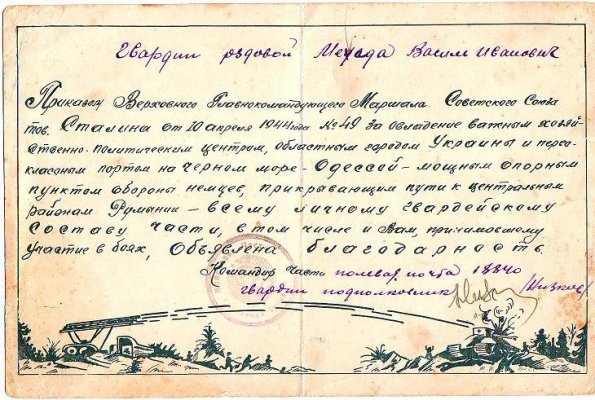 Гвардии рядовой Меходa Васил Иванович
Приказом Верховного Главнокомандующего Маршала Советского Союза
тов. Сталина от 10 апреля 1944 года № 49 за овладение важным хозяй-
ственно-политическим центром, областным городом Украины и перво-
классным портом на Черном море - Одессой - мощным опорным
пунктом обороны немцев, прикрывающим пути к центральным
районам Румынии - всему личному гвардейскому
составу части, в том числе и Вам, принимавшему
участие в боях, Объявлена благодарность.
Командир часть полевая почта 18840
гвардии подполковник